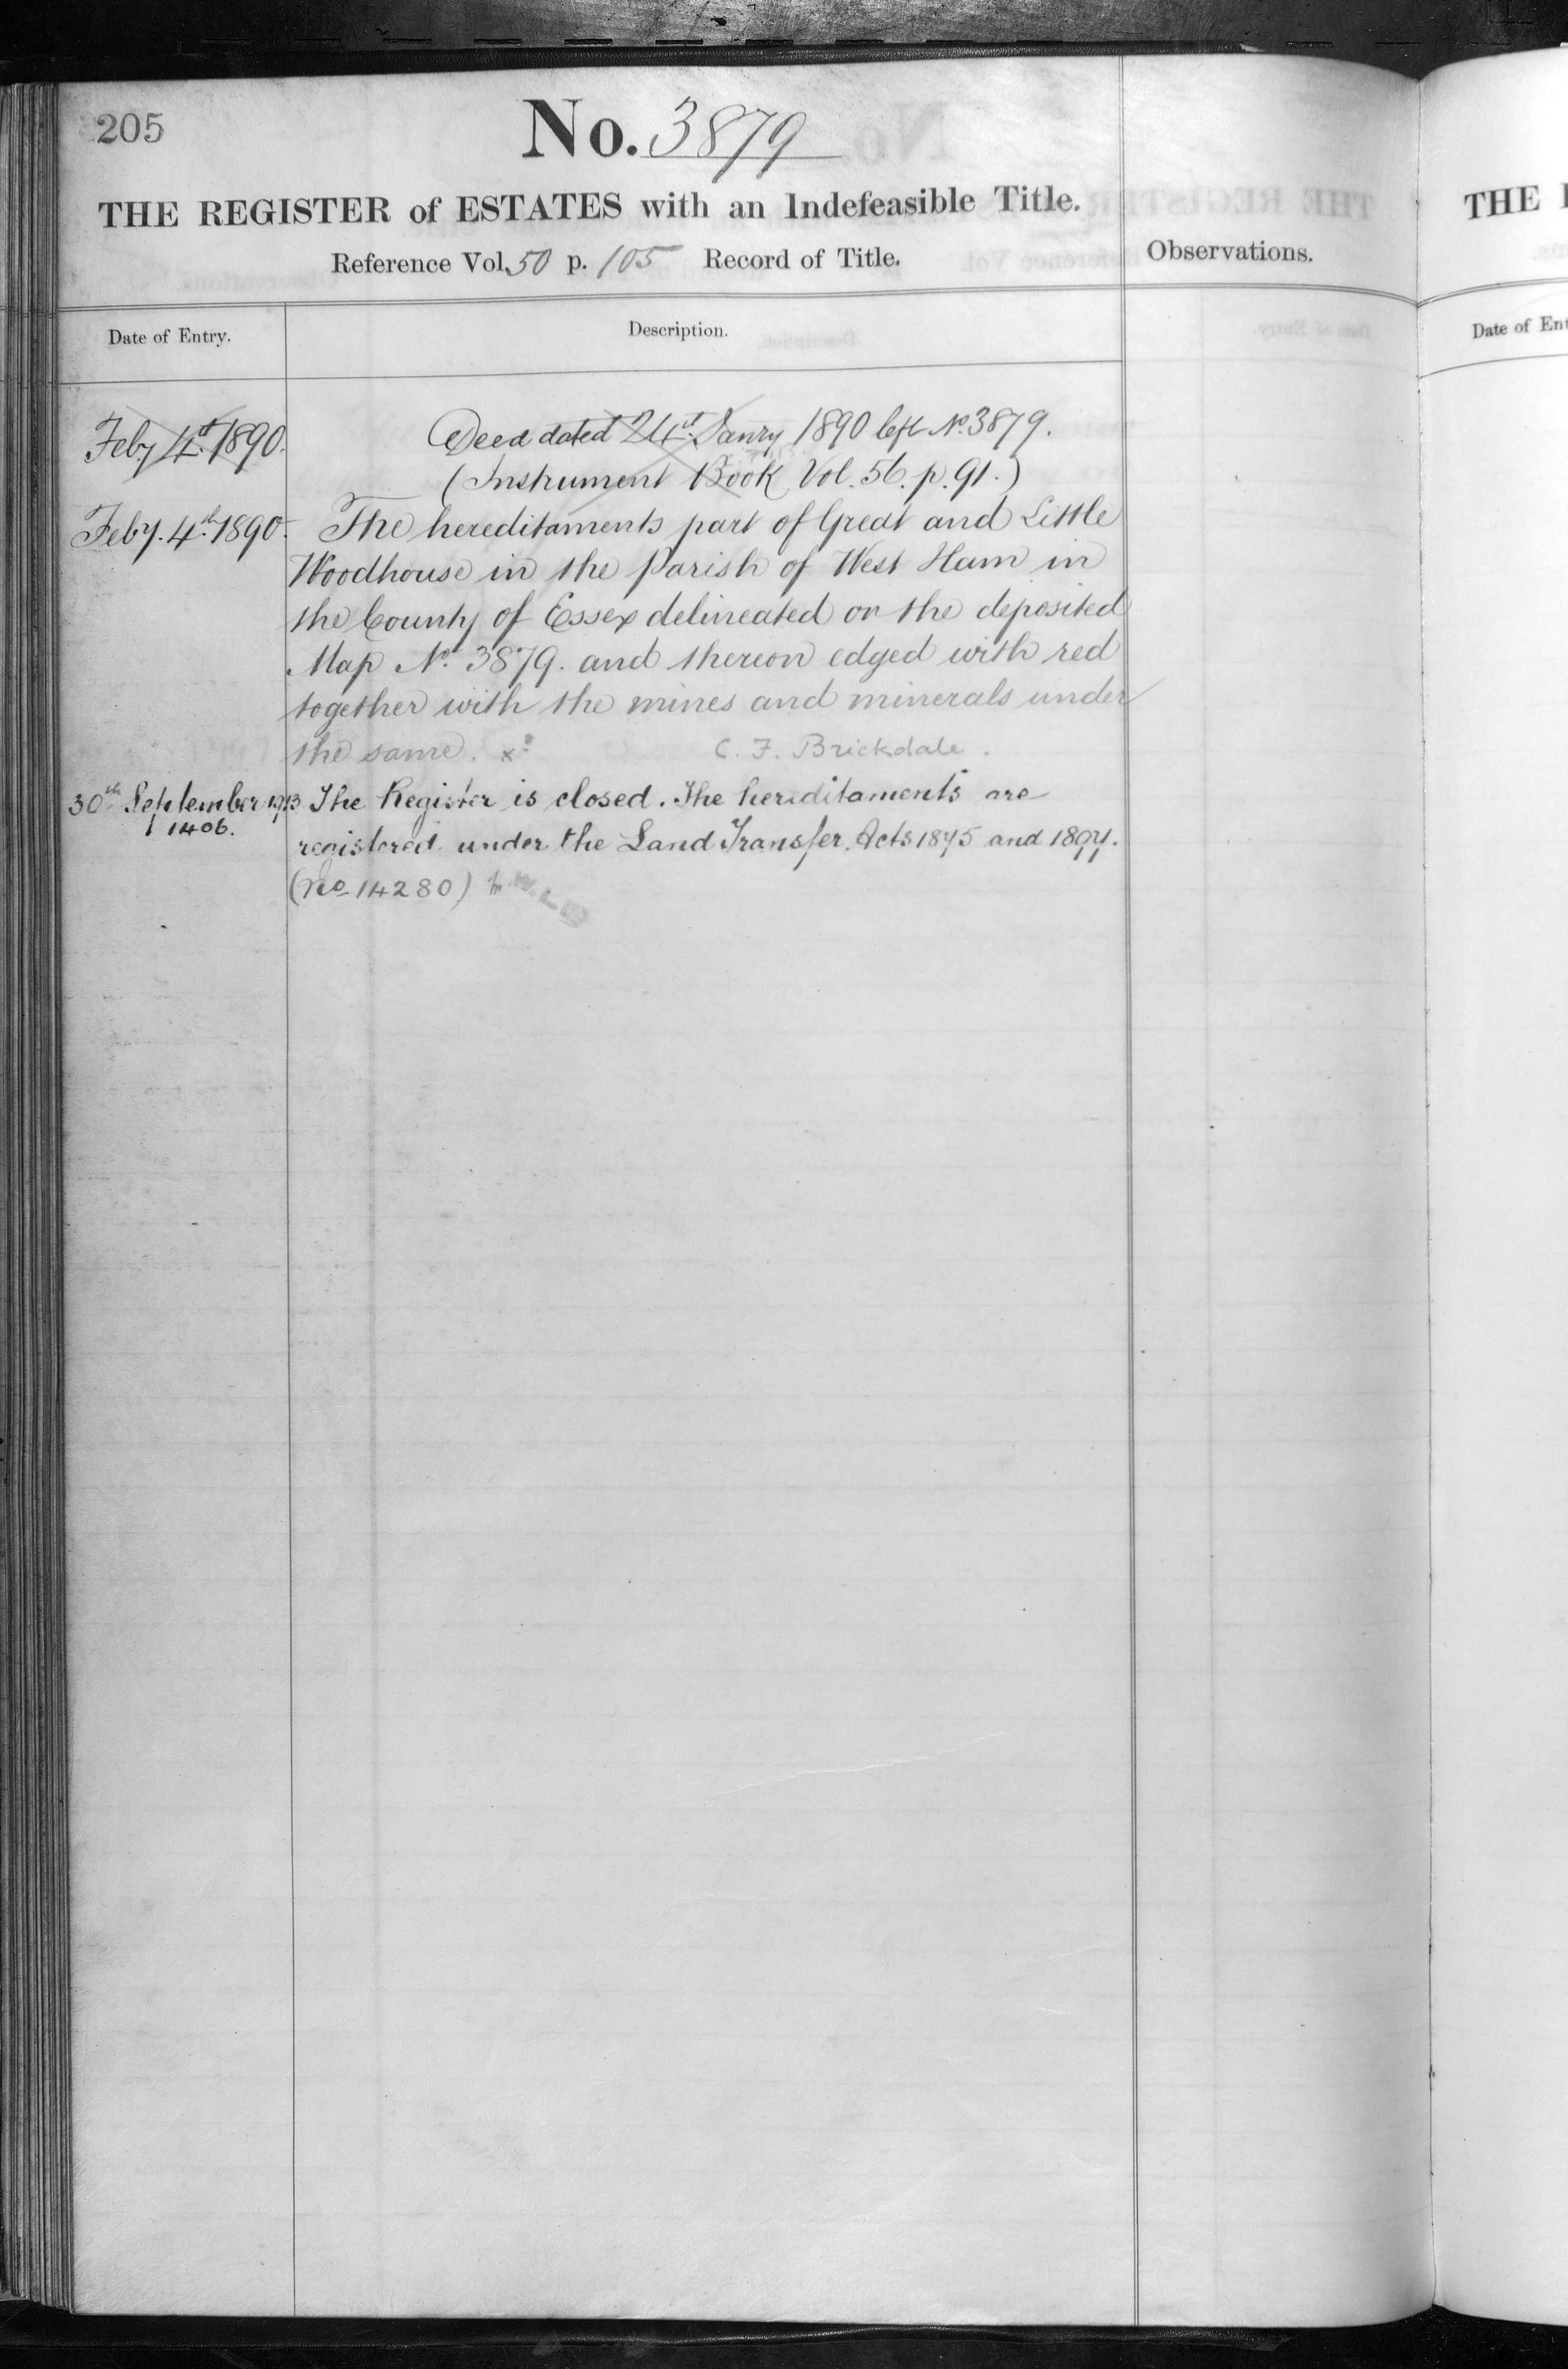 205
No. 3879
THE REGISTER of ESTATES with an Indefeasible Title.
Reference Vol. 50 p. 105 Record of Title.
Observations.
Date of Entry.
Description.
Feby 4th 1890.
Deed dated 24th Janry 1890 left No. 3879.
(Instrument Book Vol. 56. p. 91.)
Feby. 4th 1890.
The hereditaments part of Great and Little
Woodhouse in the Parish of West Ham in
the County of Essex delineated on the deposited
Map No. 3879. and thereon edged with red
together with the mines and minerals under
the same. x
C. F. Brickdale.
30th September 1913
1406.
The Register is closed. The hereditaments are
registered under the Land Transfer Acts 1875 and 1897.
(No 14280)
THE
Date of Ent